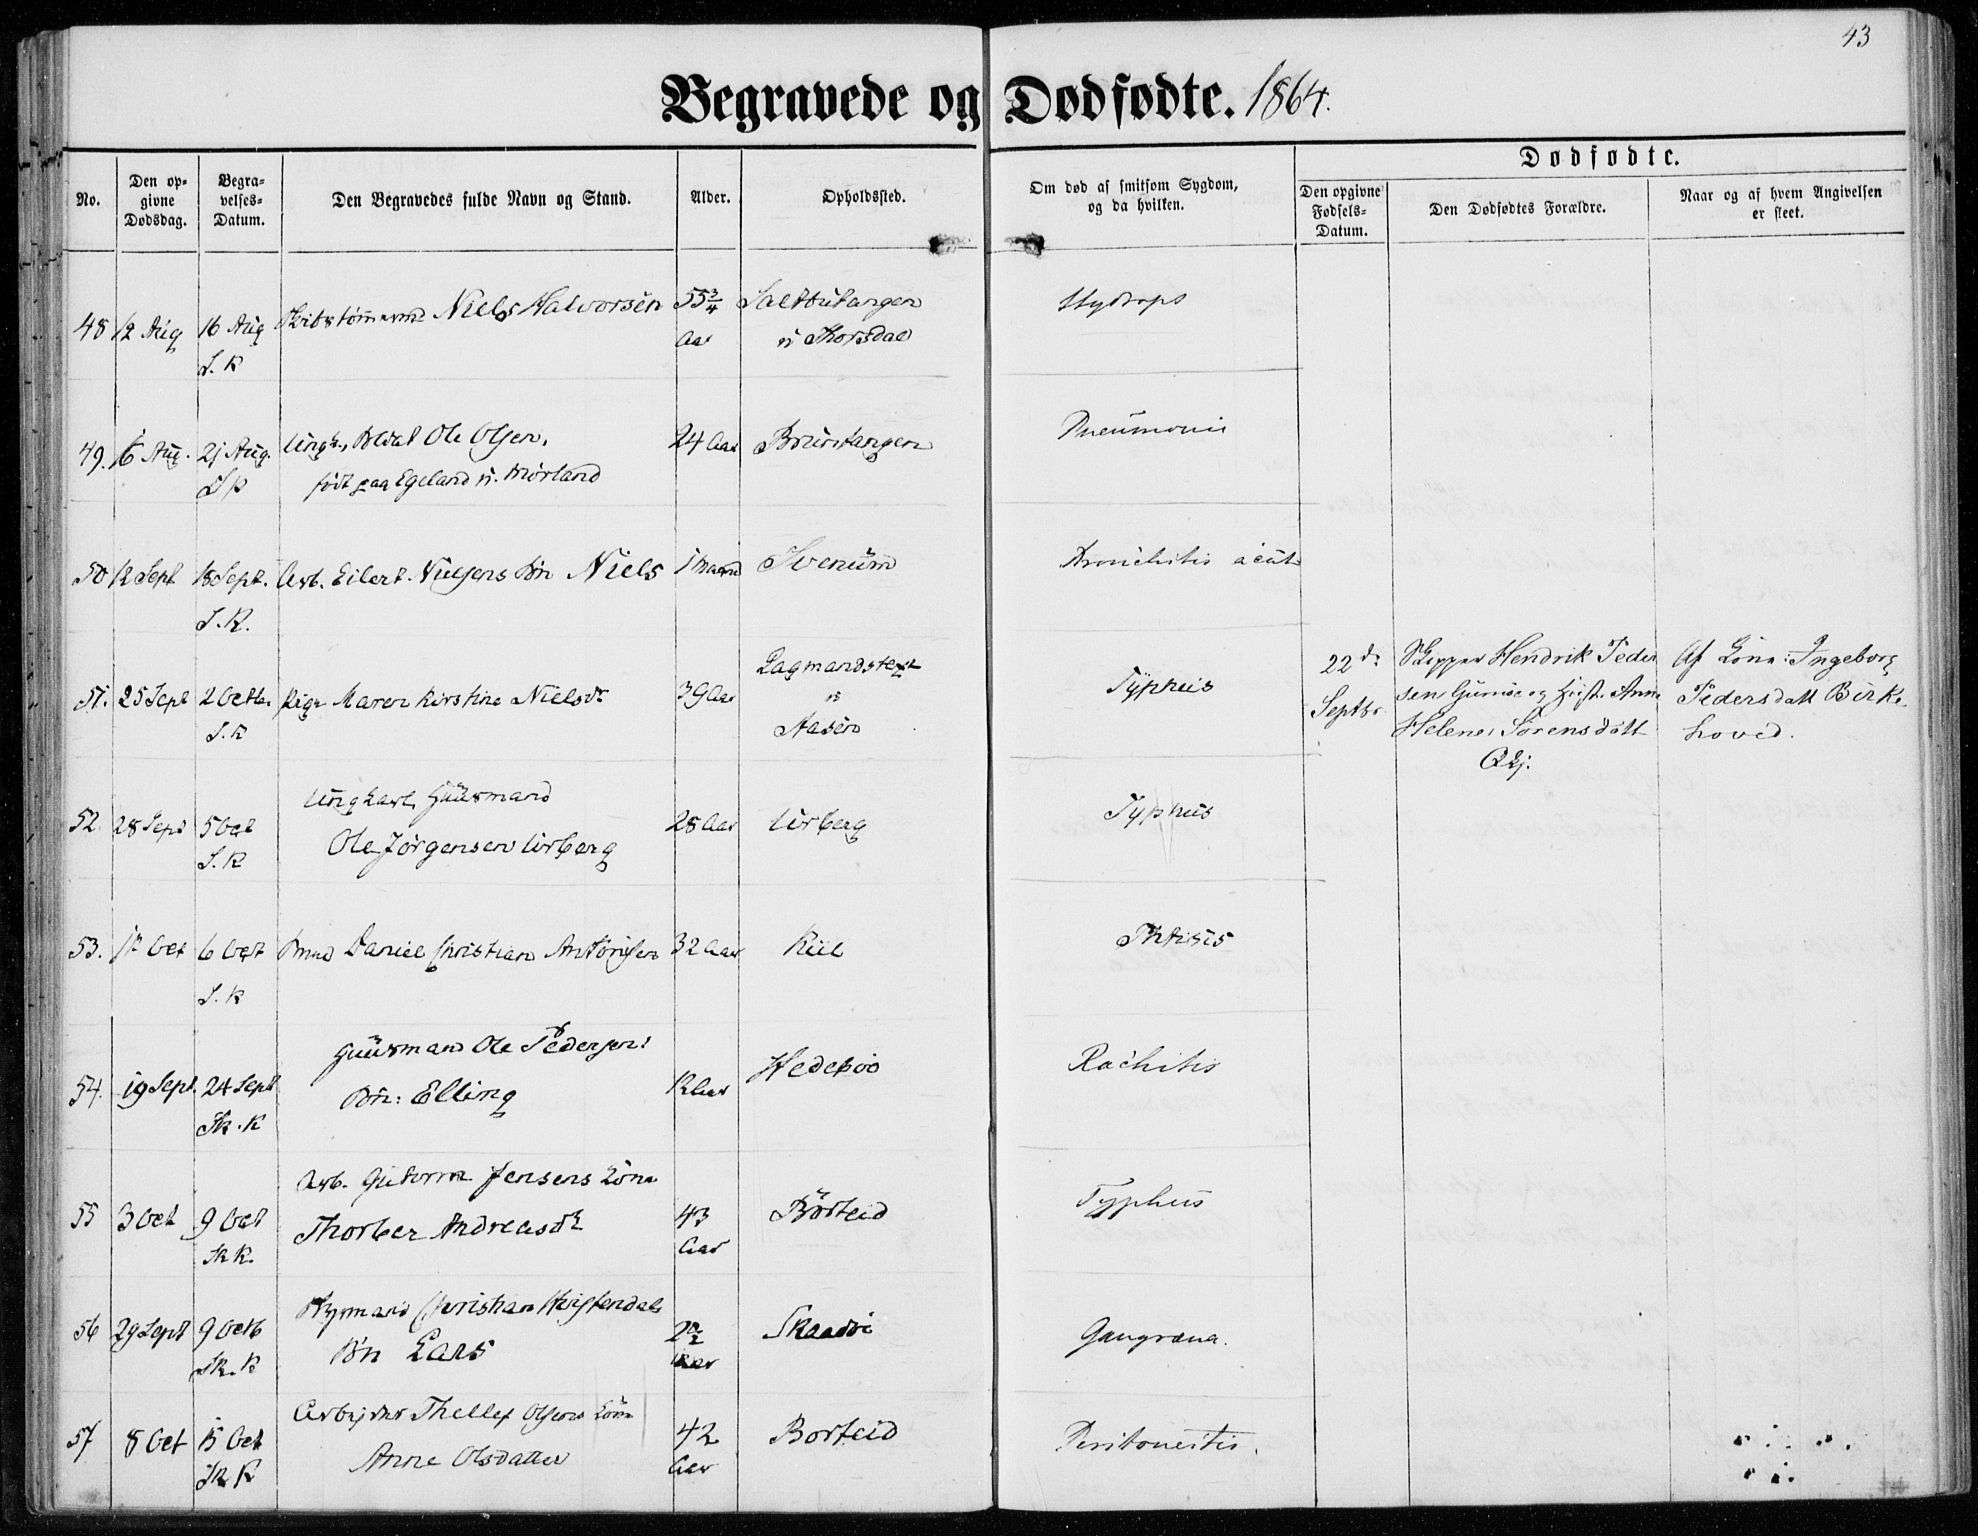 43
Begravede og Dødfødte. 1864.
No.
Den opgivne Dødsdag.
Begravelses-Datum.
Den Begravedes fulde Navn og Stand.
Alder.
Opholdssted.
Om død af smitsom Sygdom, og da hvilken.
Dødfødte.
Den opgivne Fødsels-Datum.
Den Dødfødtes Forældre.
Naar og af hvem Angivelsen er skeet.
48 12 Aug 16 Aug Niels Halvorsen 55 3/4 Hydrops
S. K Aar Thorsdal
49. 16 Aug. 21 Aug. Ungk. Ole Olsen, 24 Aar Pneumoni
S K født paa Egeland v. Mörland
50 12 Sept 18 Sept. Arb. Eilert Nielsens Bn Niels Svenum Bronchitis acut
S. K.
51. 25 Sept 2 Octbr Pige Maren Kirstine Nielsdr 39 Aar Typheus
S. K Aasen
22de Septbr
Skipper Hendrik Peder
sen og Hust. Anne
Helene Sörensdatt
Af Kone: Ingeborg
Pedersdatt Birke
hoved.
52. 28 Sept 5 Oct Ungkarl Guurmand 28 Aar Urberg Typhus
S. K Ole Jörgensen Urberg
53. 1ste Oct 6 Oct Daniel Christian 32 Aar Kiil Phtisis
S. K
54. 19 Sept. 24 Sept Guurmand Ole Pedersens Rachitis
Sk. K Bn: Elling
55 3 Oct 9 Oct Arb. Gutorm Jensens Kone 43 Börteid Typhus
Sk K. Thorber Andreasdr Aar
56 29 Sept 9 Octb Christian Gangræna.
Sk. K Bn Lars
57 8 Oct 15 Oct Arbejder Thellef Olsens Kone 42 Borteid Peritonitis.
Sk K Anne Olsdatter Aar